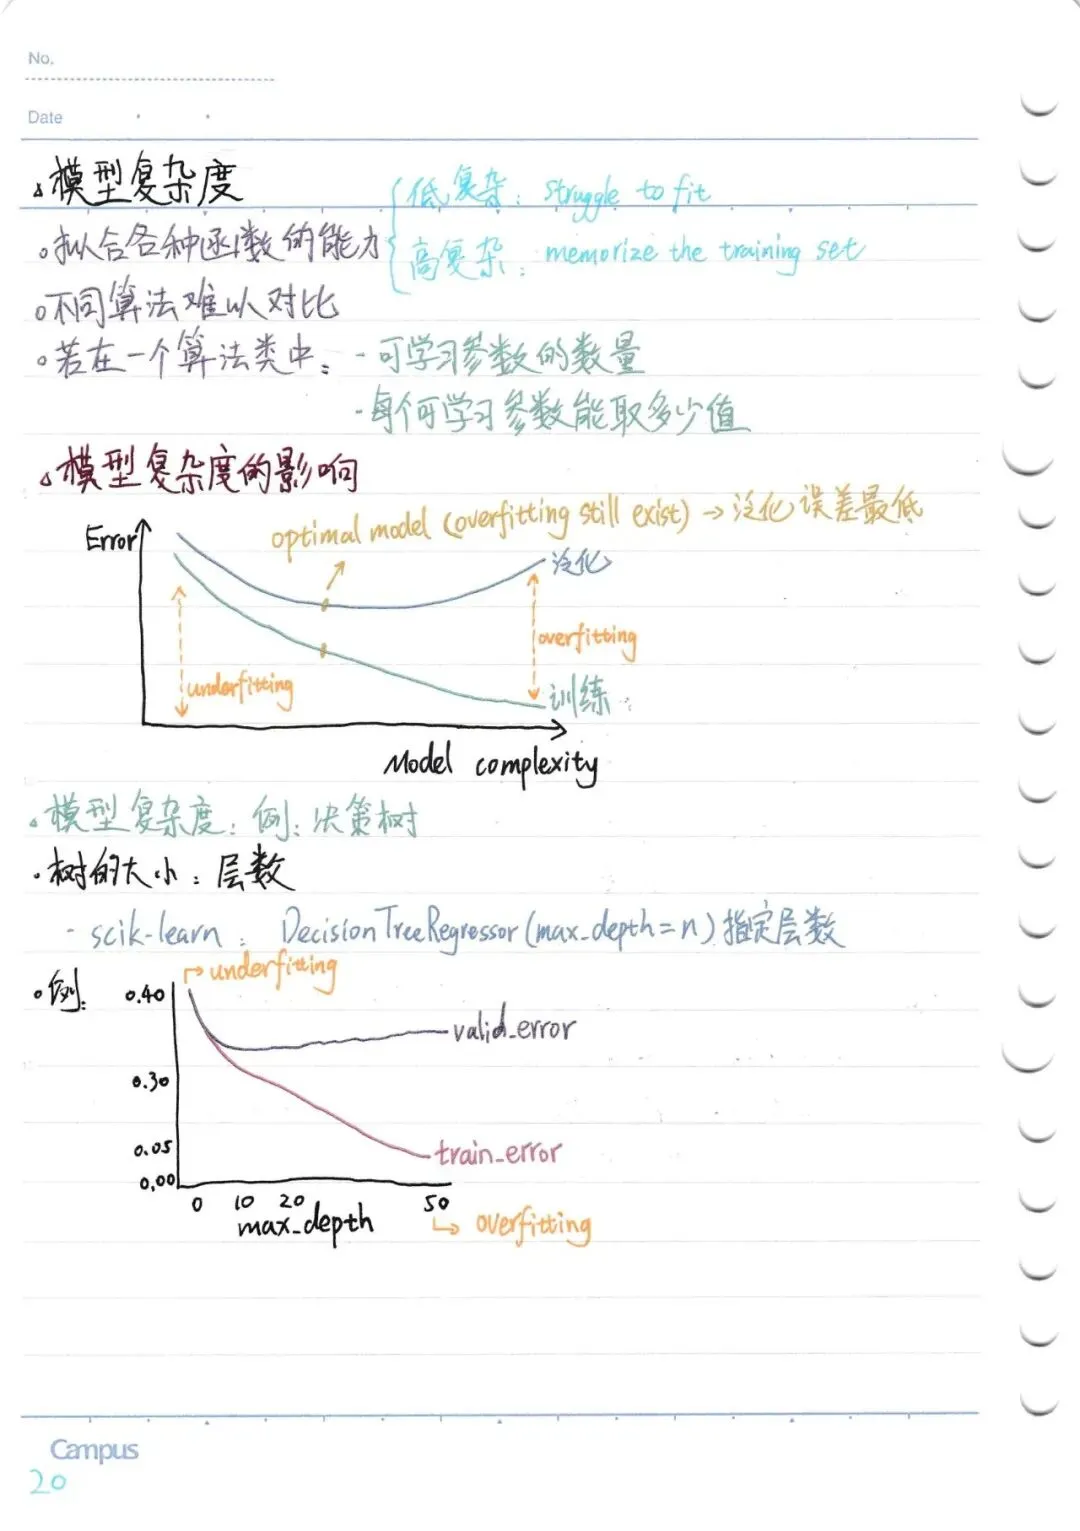 No.
Date
模型复杂度
拟合各种函数的能力 { 低复杂: struggle to fit
高复杂: memorize the training set
不同算法难以对比
若在一个算法类中: - 可学习参数的数量
- 每个可学习参数能取多少值
模型复杂度的影响
optimal model (overfitting still exist) → 泛化误差最低
Error
泛化
overfitting
underfitting
训练
Model complexity
模型复杂度: 例: 决策树
· 树的大小: 层数
- scik-learn: DecisionTreeRegressor(max_depth=n) 指定层数
underfitting
例:
0.40
valid_error
0.30
0.05
train_error
0.00
0 10 20 50
max_depth
overfitting
Campus
20